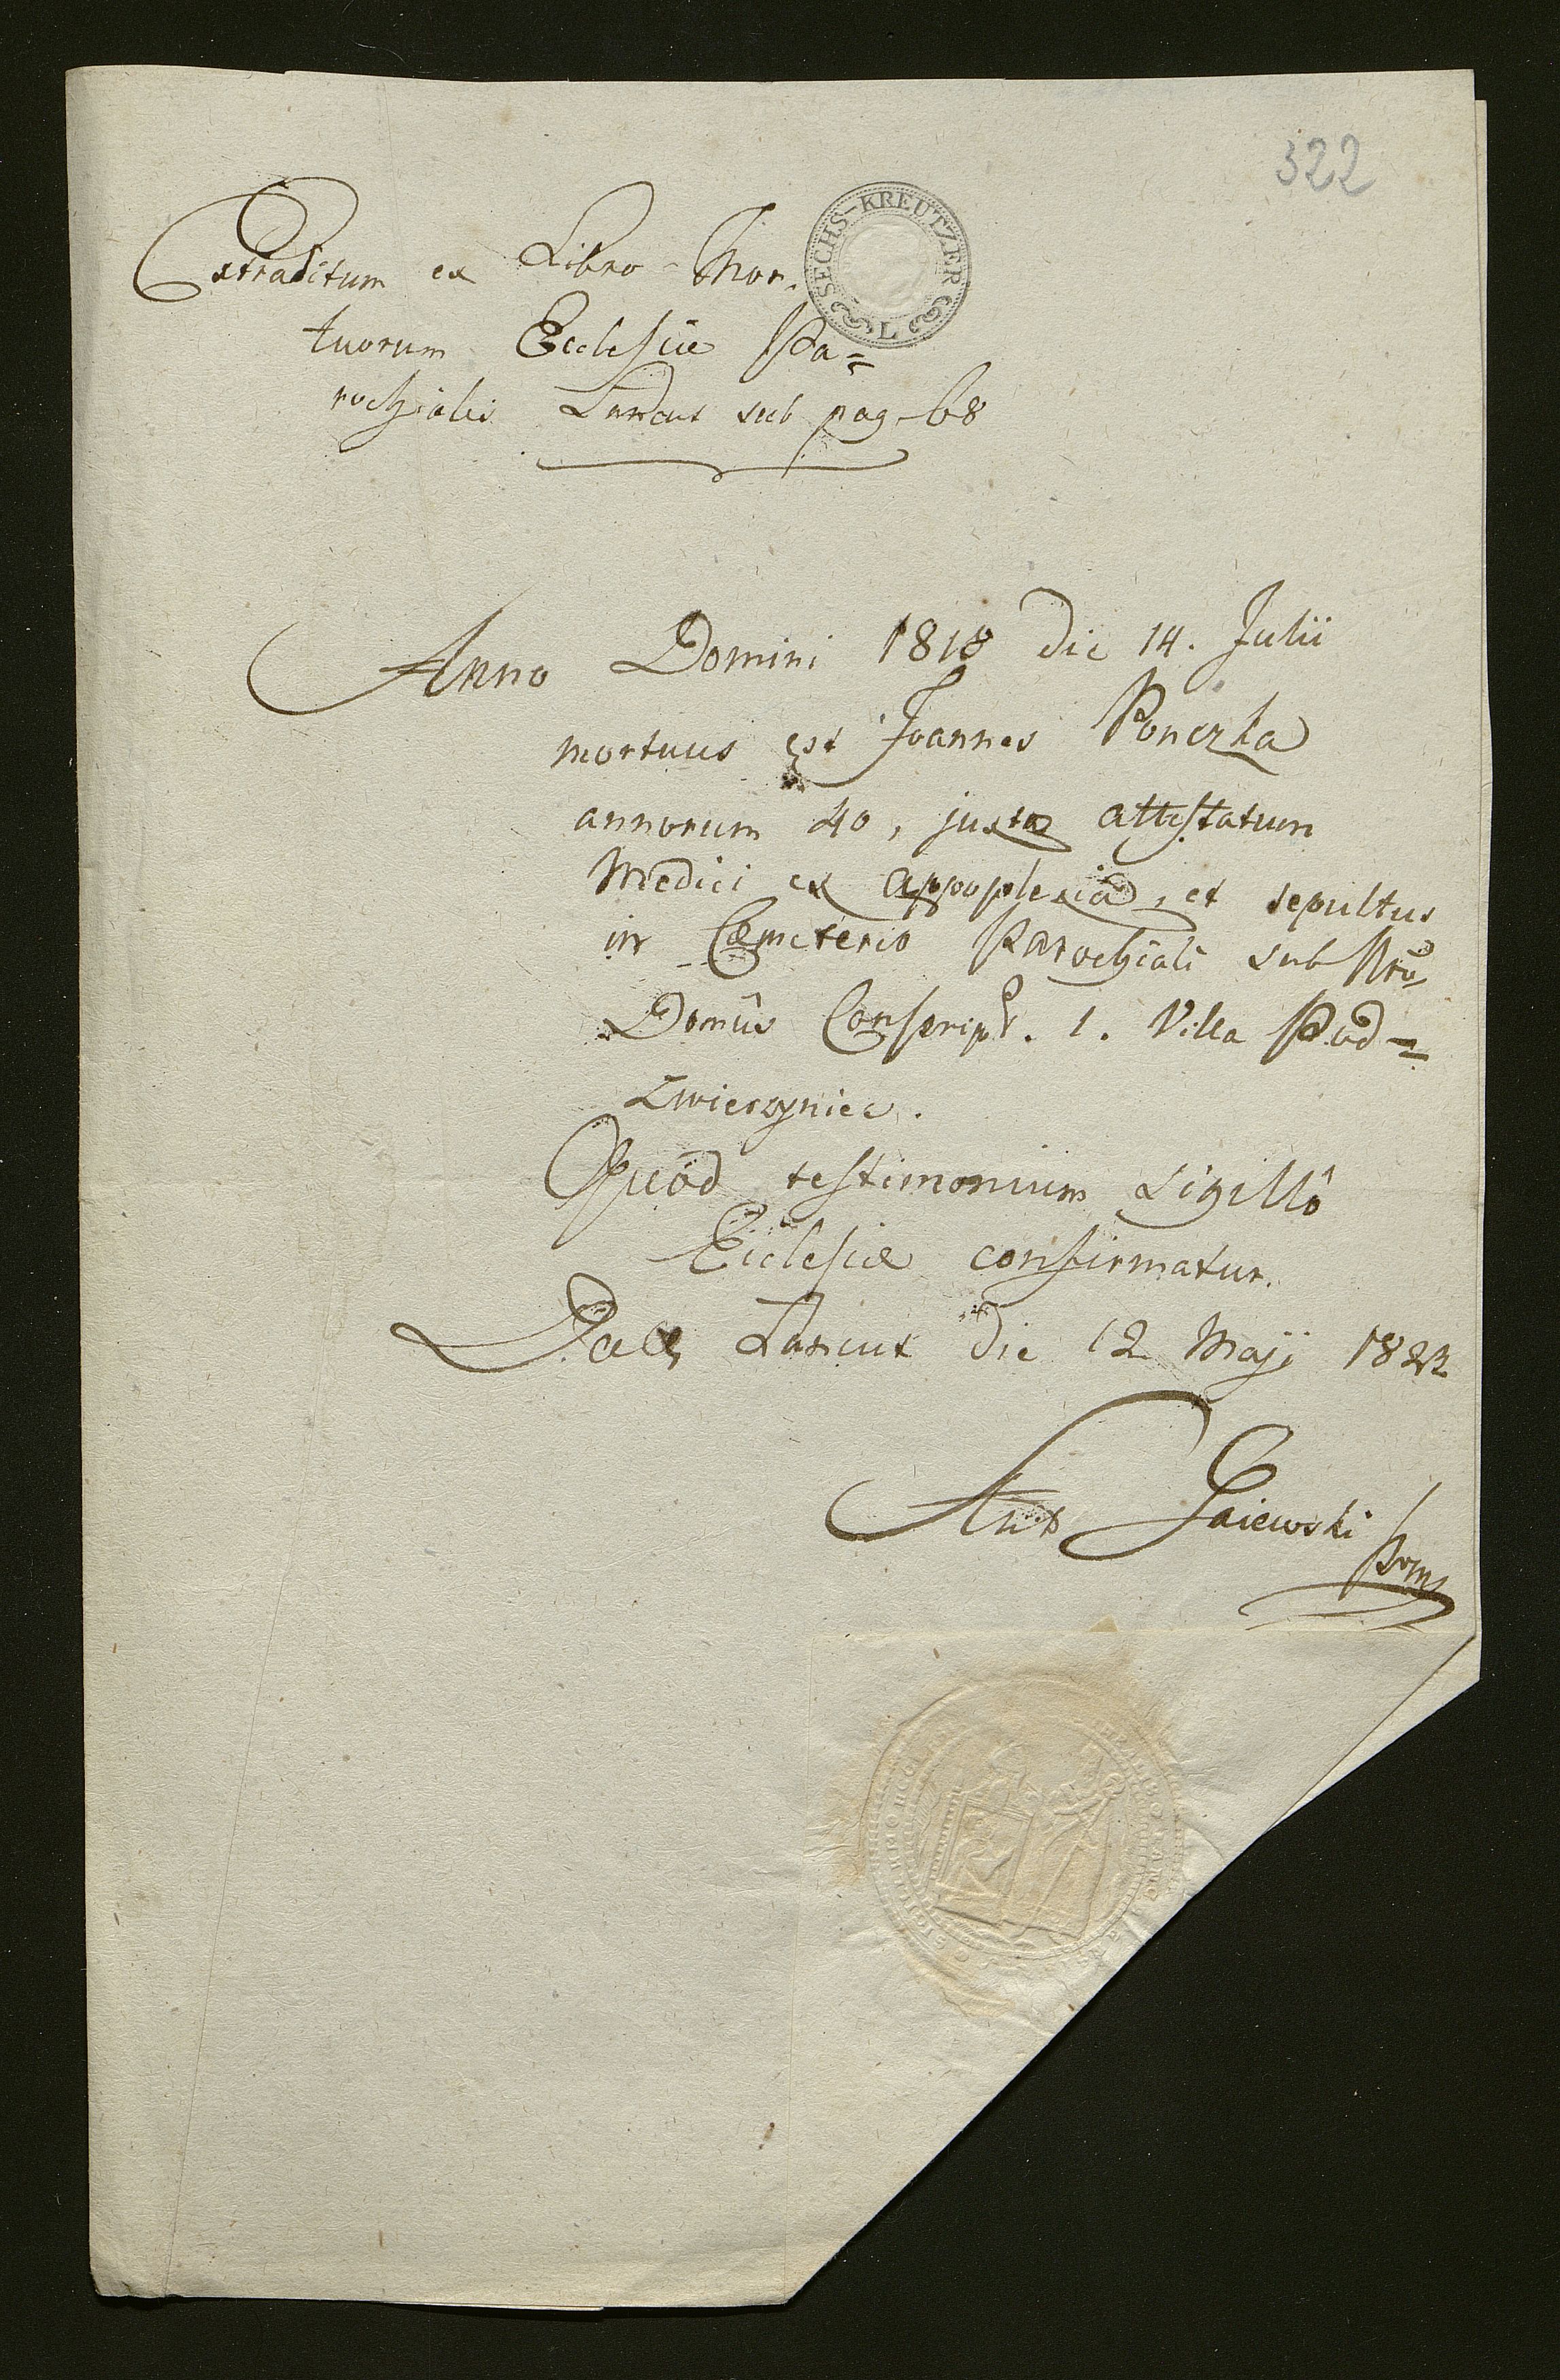 322
SECHS-KREUTZER
L
Extraditum ex Libro Mor-
tuorum Ecclesiæ Pa=
rochialis Lancut sub pag. 68
Anno Domini 1818 die 14. Julii
mortuus est Joannes Ponczka
annorum 40, juxta attestatum
Medici ex appoplexia, et sepultus
in Cæmeterio Parochiali sub Nrō
Domûs Conscript. 1. Villa Pod=
zwierzyniec.
Quod testimonium Sigillô
Ecclesiæ confirmatur.
Lancut die 12 Maji 1822
Ant Gaiewski